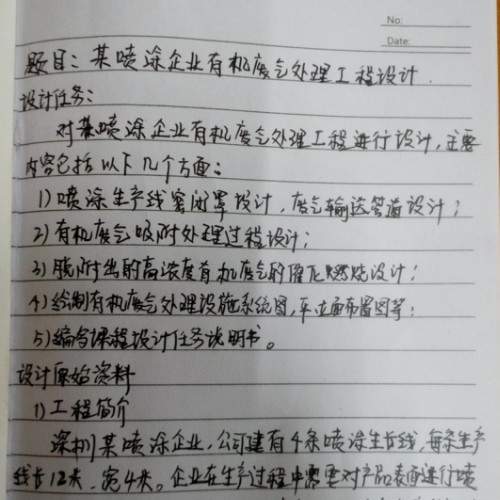 No:
Date:
题目：某喷涂企业有机废气处理工程设计.
设计任务：
对某喷涂企业有机废气处理工程进行设计，主要
内容包括以下几个方面：
1)喷涂生产线密闭罩设计，废气输送管道设计；
2)有机废气吸附处理过程设计；
3)脱附出的高浓度有机废气的催化燃烧设计；
4)绘制有机废气处理设施系统图，平立面布置图等；
5)编写课程设计任务说明书。
设计原始资料
1)工程简介
深圳某喷涂企业，公司建有4条喷涂生长线，每条生产
线长12米，宽4米。企业在生产过程中需要对产品表面进行喷